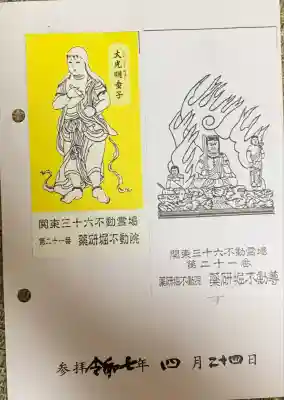 大光明童子
関東三十六不動霊場
第二十一番 薬研堀不動院
関東三十六不動霊場
第二十一番
薬研堀不動院 薬研堀不動尊
参拝 令和七年 四 月 二十四日